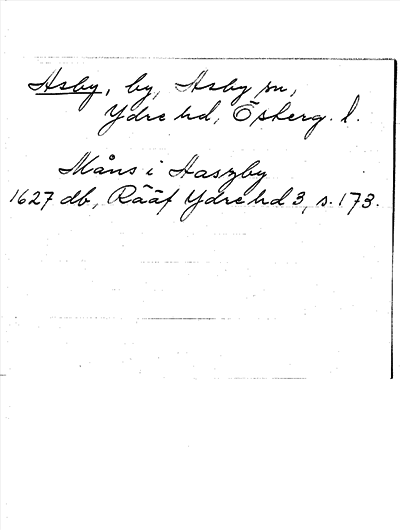 Asby, by, Asby sn,
Ydre hd, Österg. l.
Måns i Aaszby
1627 db, Rääf Ydrehd 3, s. 173.